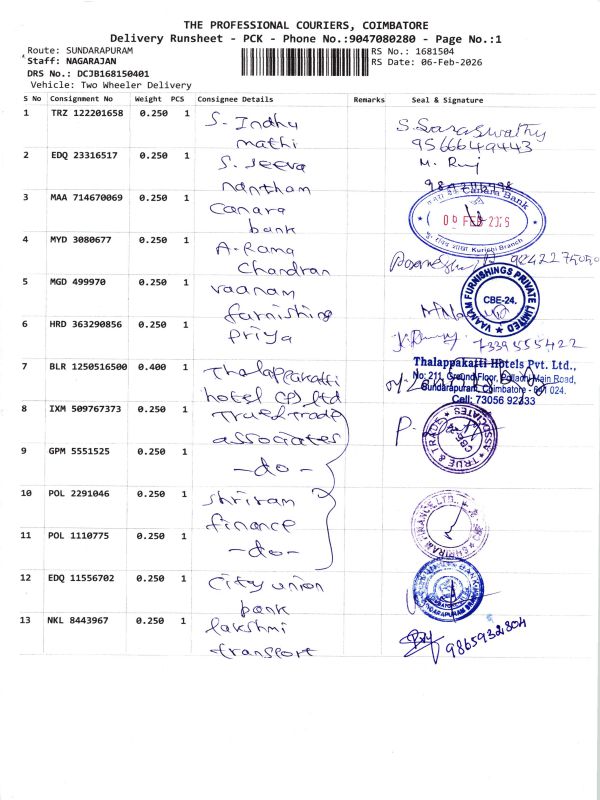 THE PROFESSIONAL COURIERS, COIMBATORE
Delivery Runsheet - PCK - Phone No.:9047080280 - Page No.:1
Route: SUNDARAPURAM
RS No.: 1681504
Staff: NAGARAJAN
RS Date: 06-Feb-2026
DRS No.: DCJB168150401
Vehicle: Two Wheeler Delivery
S No Consignment No Weight PCS Consignee Details Remarks Seal & Signature
1 TRZ 122201658 0.250 1 S. Indhu
mathi
S. Saraswathy
9566649443
2 EDQ 23316517 0.250 1 S. Jeeva
nantham
3 MAA 714670069 0.250 1 Canara
bank
Canara Bank
Kurichi Branch
4 MYD 3080677 0.250 1 A. Rama
Chandran
5 MGD 499970 0.250 1 vaanam
furnishing
VAANAM FURNISHINGS PRIVATE LIMITED
CBE-24.
6 HRD 363290856 0.250 1 Priya
7339555422
7 BLR 1250516500 0.400 1 Thalappakatti
hotel (P) ltd
Thalappakatti Hotels Pvt. Ltd.,
No: 211, Ground Floor, Pollachi Main Road,
Sundarapuram, Coimbatore - 641 024.
Cell: 73056 92333
8 IXM 509767373 0.250 1 True & trade
associates
TRUE & TRADE ASSOCIATES
CBE
9 GPM 5551525 0.250 1 - do -
10 POL 2291046 0.250 1 shriram
finance
SHRIRAM FINANCE LTD.
11 POL 1110775 0.250 1 - do -
12 EDQ 11556702 0.250 1 City union
bank
13 NKL 8443967 0.250 1 lakshmi
transport
9865932804